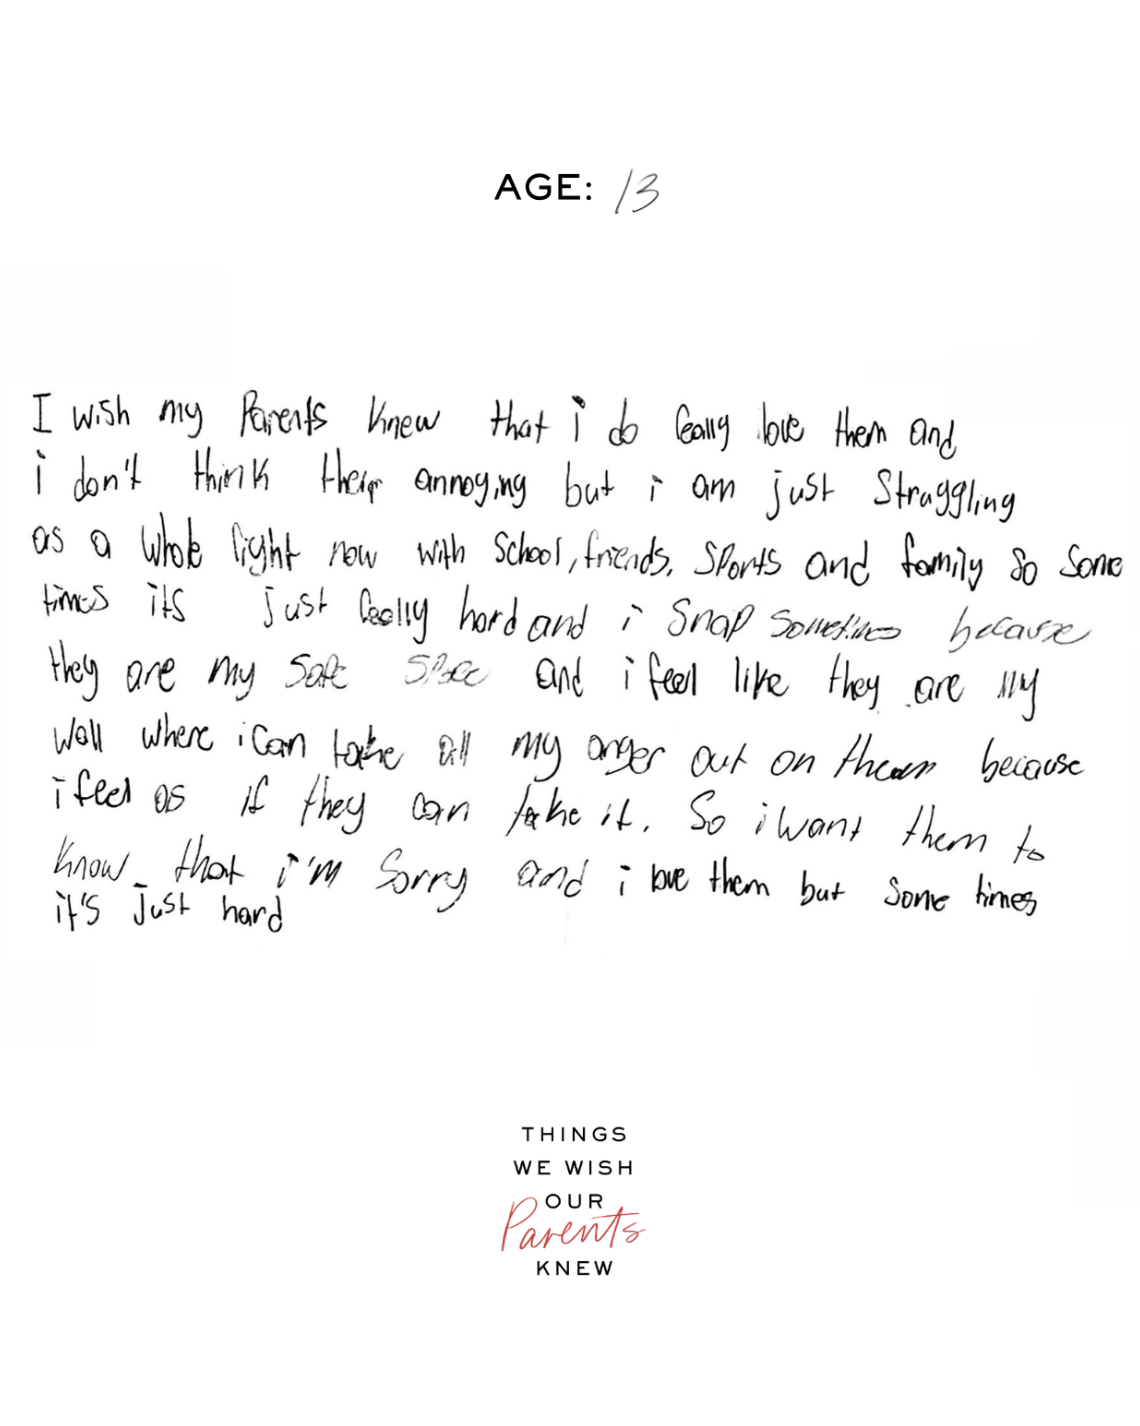 AGE: 13
I wish my Parents knew that i do really love them and
i don't think their annoying but i am just struggling
as a whole right now with School, friends, sports and family so some
times its just really hard and i snap sometimes because
they are my safe space and i feel like they are my
wall where i can take all my anger out on them because
i feel as if they can take it. So i want them to
know that i'm sorry and i love them but some times
it's just hard
THINGS
WE WISH
OUR
Parents
KNEW